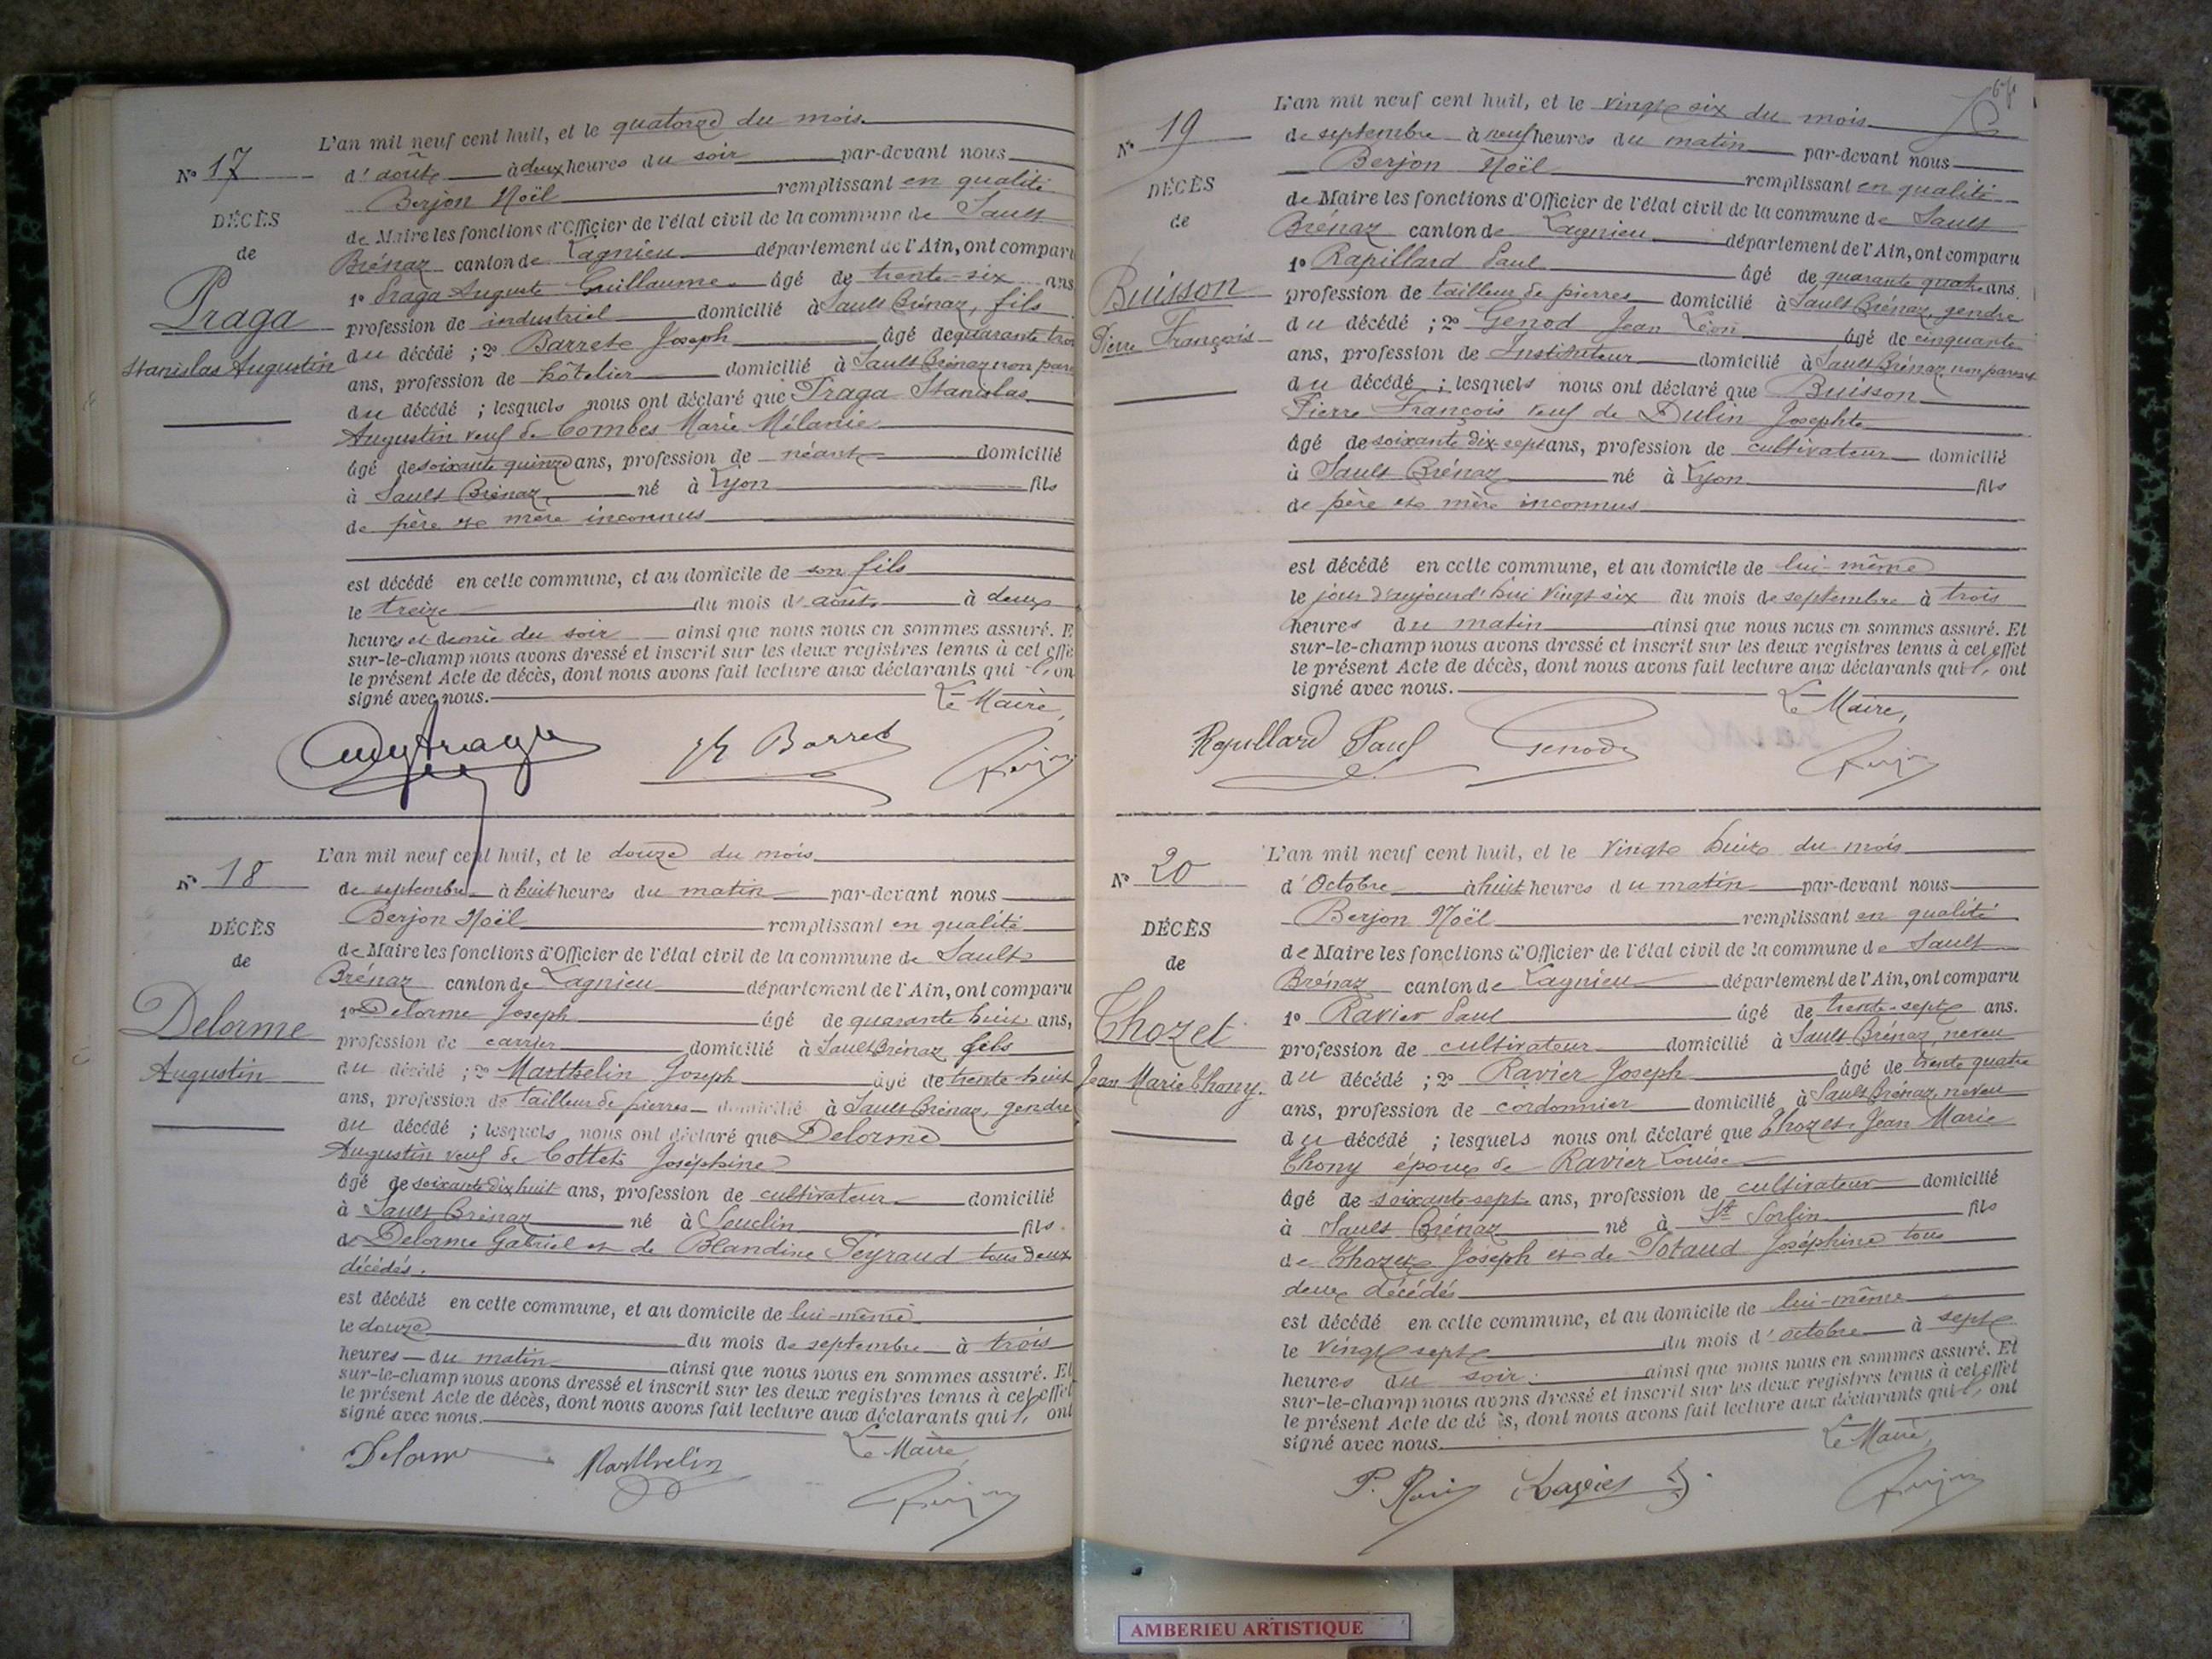 L'an mil neuf cent huit, et le quatorze du mois
N° 17
d'août à deux heures du soir par-devant nous
Berjon Noël remplissant en qualité
DÉCÈS
de Maire les fonctions d'Officier de l'état civil de la commune de Sault
de
Brénaz canton de Lagnieu département de l'Ain, ont comparu
1° Praga Auguste Guillaume âgé de trente-six ans
Praga
profession de industriel domicilié à Sault Brénaz, fils
Stanislas Augustin
du décédé ; 2° Barret Joseph âgé de quarante trois
ans, profession de hôtelier domicilié à Sault Brénaz non parent
du décédé ; lesquels nous ont déclaré que Praga Stanislas
Augustin veuf de Combes Marie Mélanie
âgé de soixante quinze ans, profession de néant domicilié
à Sault Brénaz né à Lyon fils
de père et mère inconnus
est décédé en cette commune, et au domicile de son fils
le treize du mois d'août à deux
heures et demie du soir ainsi que nous nous en sommes assuré. E
sur-le-champ nous avons dressé et inscrit sur les deux registres tenus à cet effe
le présent Acte de décès, dont nous avons fait lecture aux déclarants qui l'on
signé avec nous. Le Maire,
Jh Barret
L'an mil neuf cent huit, et le douze du mois
N° 18
de septembre à huit heures du matin par-devant nous
Berjon Noël remplissant en qualité
DÉCÈS
de Maire les fonctions d'Officier de l'état civil de la commune de Sault
de
Brénaz canton de Lagnieu département de l'Ain, ont comparu
1° Delorme Joseph âgé de quarante huit ans,
Delorme
profession de carrier domicilié à Sault Brénaz fils
Augustin
du décédé ; 2° Marthelin Joseph âgé de trente huit
ans, profession de tailleur de pierres domicilié à Sault Brénaz, gendre
du décédé ; lesquels nous ont déclaré que Delorme
Augustin veuf de Cottet Joséphine
âgé de soixante dix huit ans, profession de cultivateur domicilié
à Sault Brénaz né à Souclin fils
de Delorme Gabriel et de Blandine Peyraud tous deux
décédés.
est décédé en cette commune, et au domicile de lui-même
le douze du mois de septembre à trois
heures du matin ainsi que nous nous en sommes assuré. Et
sur-le-champ nous avons dressé et inscrit sur les deux registres tenus à cet effet
le présent Acte de décès, dont nous avons fait lecture aux déclarants qui l' ont
signé avec nous. Le Maire,
Delorme Marthelin Berjon
L'an mil neuf cent huit, et le vingt six du mois
N° 19
de septembre à neuf heures du matin par-devant nous
Berjon Noël remplissant en qualité
DÉCÈS
de Maire les fonctions d'Officier de l'état civil de la commune de Sault
de
Brénaz canton de Lagnieu département de l'Ain, ont comparu
1° Rapillard Paul âgé de quarante quatre ans.
Buisson
profession de tailleur de pierres domicilié à Sault Brénaz, gendre
Pierre François
du décédé ; 2° Genod Jean Léon âgé de cinquante
ans, profession de Instituteur domicilié à Sault Brénaz non parent
du décédé ; lesquels nous ont déclaré que Buisson
Pierre François veuf de Dulin Josephte
âgé de soixante dix sept ans, profession de cultivateur domicilié
à Sault Brénaz né à Lyon fils
de père et mère inconnus
est décédé en cette commune, et au domicile de lui-même
le jour d'aujourd'hui vingt six du mois de septembre à trois
heures du matin ainsi que nous nous en sommes assuré. Et
sur-le-champ nous avons dressé et inscrit sur les deux registres tenus à cet effet
le présent Acte de décès, dont nous avons fait lecture aux déclarants qui l' ont
signé avec nous. Le Maire,
Rapillard Paul Genod Berjon
L'an mil neuf cent huit, et le vingt huit du mois
N° 20
d'Octobre à huit heures du matin par-devant nous
Berjon Noël remplissant en qualité
DÉCÈS
de Maire les fonctions d'Officier de l'état civil de la commune de Sault
de
Brénaz canton de Lagnieu département de l'Ain, ont comparu
1° Ravier Paul âgé de trente-sept ans.
Chozet
profession de cultivateur domicilié à Sault Brénaz, neveu
Jean Marie Thony
du décédé ; 2° Ravier Joseph âgé de trente quatre
ans, profession de cordonnier domicilié à Sault Brénaz, neveu
du décédé ; lesquels nous ont déclaré que Chozet Jean Marie
Thony époux de Ravier Louise
âgé de soixante sept ans, profession de cultivateur domicilié
à Sault Brénaz né à St Sorlin fils
de Chozet Joseph et de Potaud Joséphine tous
deux décédés
est décédé en cette commune, et au domicile de lui-même
le vingt sept du mois d'octobre à sept
heures du soir. ainsi que nous nous en sommes assuré. Et
sur-le-champ nous avons dressé et inscrit sur les deux registres tenus à cet effet
le présent Acte de décès, dont nous avons fait lecture aux déclarants qui l' ont
signé avec nous. Le Maire,
AMBERIEU ARTISTIQUE